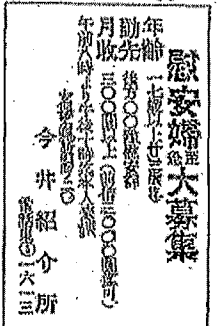 慰安婦至急大募集
年齢 一七歳以上廿三歳迄
勤先 後方○○部隊慰安部
月収 三〇〇圓以上(前借三〇〇〇圓迄可)
午前八時より午後十時迄本人來談
今井紹介所
一六一三